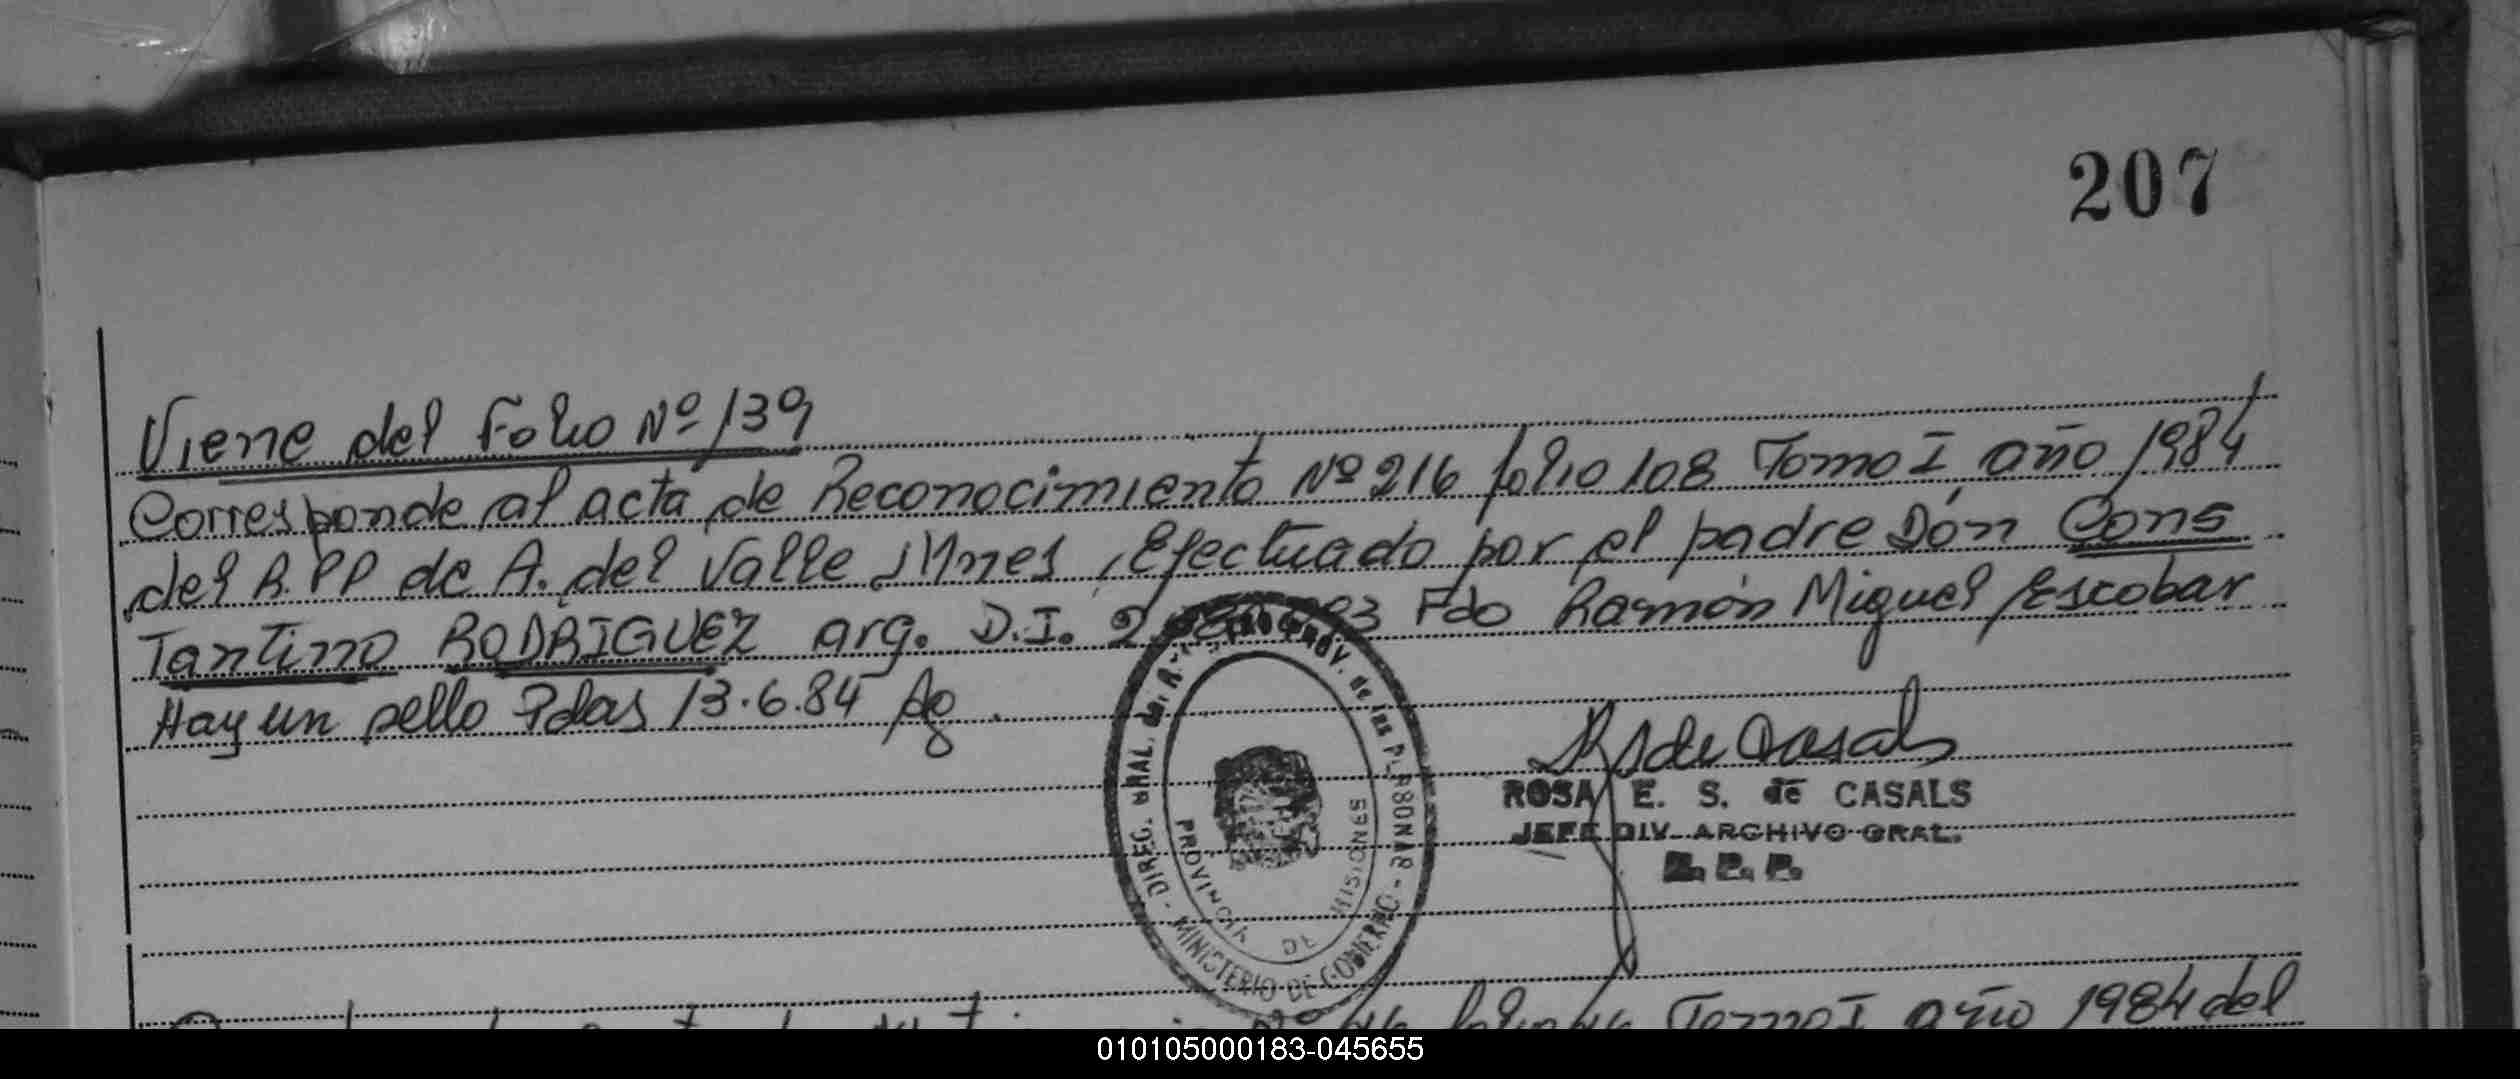 207
Viene del Folio Nº 139
Corresponde al acta de Reconocimiento Nº 216 folio 108 Tomo I año 1984
del R.PP de A. del Valle Mnes, Efectuado por el padre Dón Cons
Tantino RODRÍGUEZ arg. D.I. Fdo Ramón Miguel Escobar
Hay un sello Pdas 13.6.84
DIREC. GRAL. del R. PROV. de las PERSONAS - MINISTERIO DE GOBIERNO -
PROVINCIA DE MISIONES
RS de Casals
ROSA E. S. de CASALS
JEFE DIV. ARCHIVO GRAL.
R.P.P.
Tomo I año 1984 del
010105000183-045655